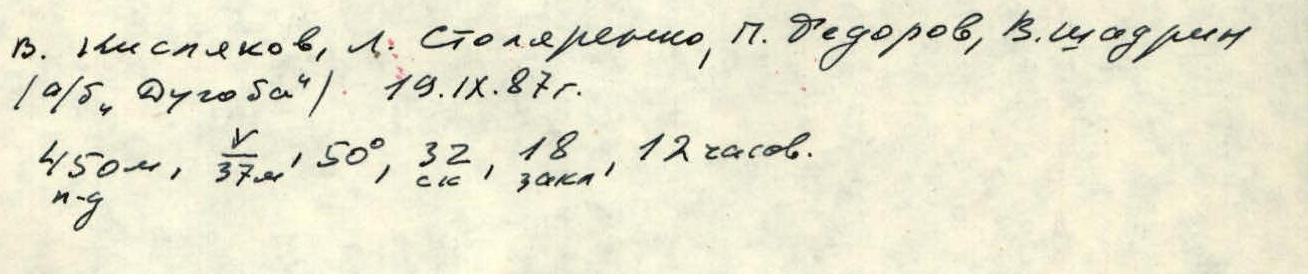 В. Кисляков, Л. Столяренко, П. Федоров, В. Шадрин
(а/б „Дугоба") 19.IX.87г.
450м, V, 50°, 32, 18, 12 часов.
п-д 37м ск закл